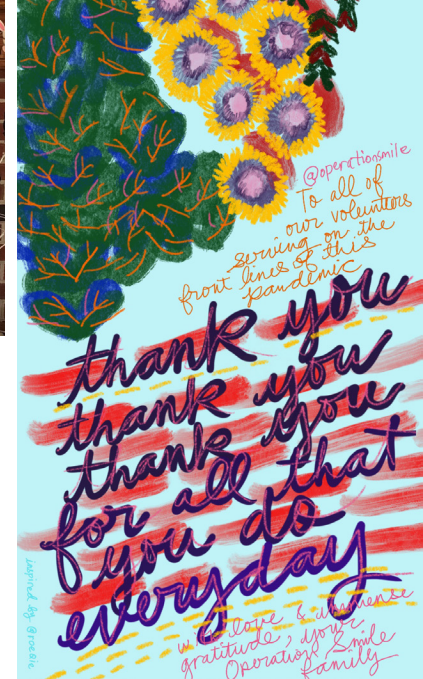 @operationsmile
To all of
our volunteers
serving on the
front lines of this
pandemic
thank you
thank you
thank you
for all that
you do
everyday
with love & immense
gratitude, your
Operation Smile
family
inspired by @roeqie